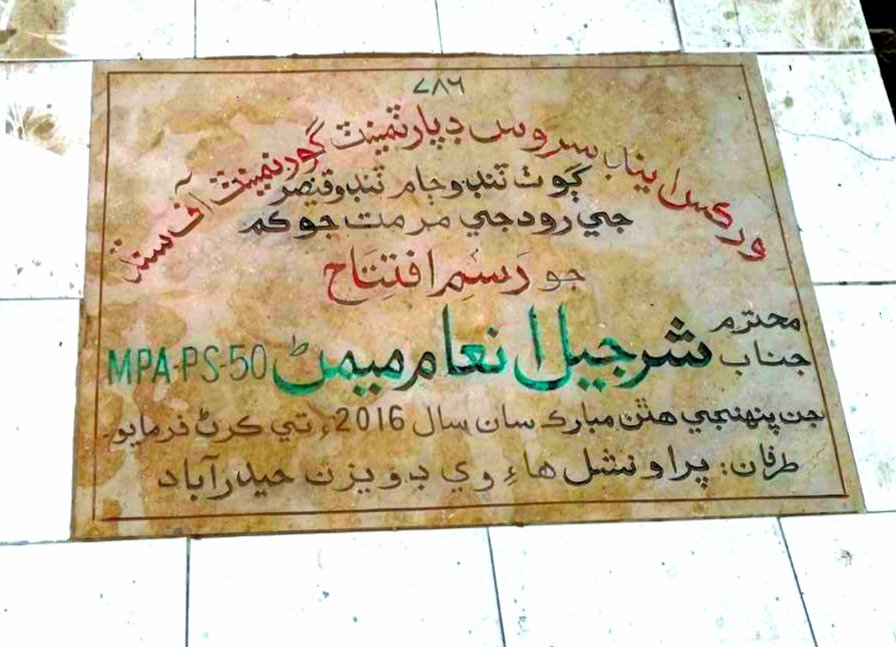 ۷۸۶
ورڪس اينڊ سروس ڊپارٽمينٽ گورنمينٽ آف سنڌ
ڳوٺ ٽنڊو ڄام ٽنڊو قيصر
جي روڊ جي مرمت جو ڪم
جو رَسمِ افتِتَاح
محترم جناب شرجيل انعام ميمڻ MPA-PS-50
جن پنهنجي هٿن مبارڪ سان سال 2016ع تي ڪرڻ فرمايو.
طرفان: پراونشل هاءِ وي ڊويزن حيدرآباد